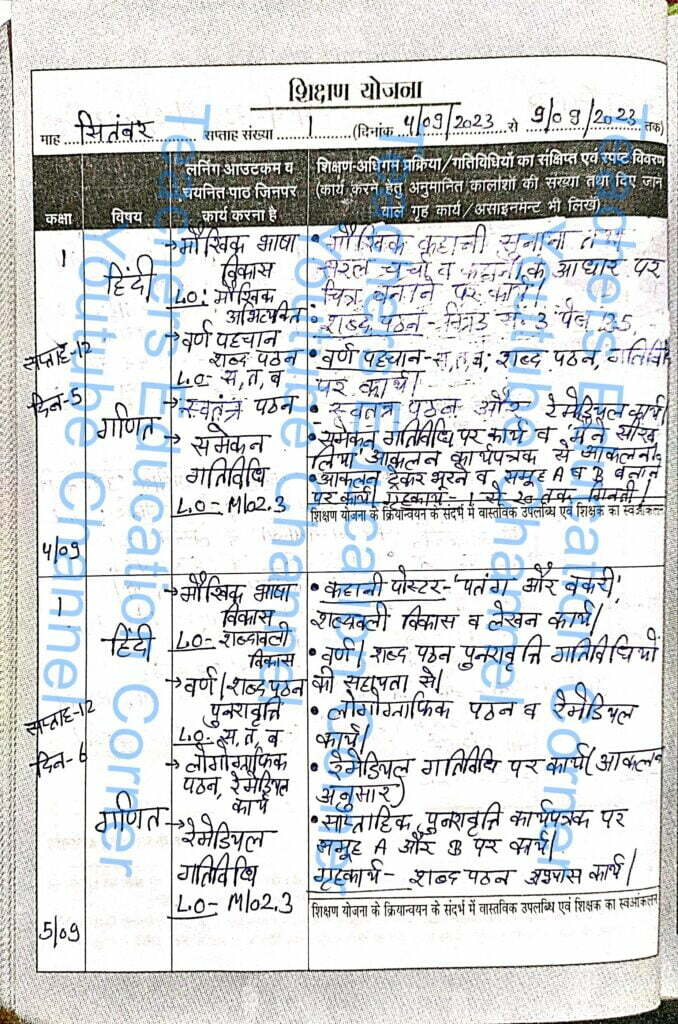 शिक्षण योजना
माह सितंबर सप्ताह संख्या 1 (दिनांक 4/09/2023 से 9/09/2023 तक)
कक्षा
विषय
लर्निंग आउटकम व
चयनित पाठ जिनपर
कार्य करना है
शिक्षण-अधिगम प्रक्रिया/गतिविधियों का संक्षिप्त एवं स्पष्ट विवरण
(कार्य करने हेतु अनुमानित कालांशों की संख्या तथा दिए जाने
वाले गृह कार्य/असाइनमेंट भी लिखें)
1
सप्ताह-12
दिन-5
4/09
हिंदी
गणित
→मौखिक भाषा
विकास
L.O: मौखिक
अभिव्यक्ति
→वर्ण पहचान
शब्द पठन
L.O- स,त,व
→स्वतंत्र पठन
→ समेकन
गतिविधि
L.O- M102.3
• मौखिक कहानी सुनाना तथा
सरल चर्चा व कहानी के आधार पर
चित्र बनाने पर कार्य।
• शब्द पठन - सं. 3 135
• वर्ण पहचान-स,त,व, शब्द पठन, गतिविधि
पर कार्य।
• स्वतंत्र पठन और रेमेडियल कार्य।
• समेकन गतिविधि पर कार्य व 'मैंने सीख
लिया' आकलन कार्यपत्रक से आकलन।
• आकलन ट्रैकर भरने व समूह A व B बनाने
पर कार्य। गृहकार्य- 1 से 20 तक गिनती।
शिक्षण योजना के क्रियान्वयन के संदर्भ में वास्तविक उपलब्धि एवं शिक्षक का स्वआंकलन
1
सप्ताह-12
दिन-6
5/09
हिंदी
गणित
→मौखिक भाषा
विकास
L.O- शब्दावली
विकास
→वर्ण/शब्द पठन
पुनरावृत्ति
L.O- स,त,व
→लोगोग्राफिक
पठन, रेमेडियल
कार्य
→रेमेडियल
गतिविधि
L.O- M102.3
• कहानी पोस्टर-'पतंग और बकरी'
शब्दावली विकास व लेखन कार्य।
• वर्ण/शब्द पठन पुनरावृत्ति गतिविधियों
की सहायता से।
• लोगोग्राफिक पठन व रेमेडियल
कार्य।
• रेमेडियल गतिविधि पर कार्य(आकलन
अनुसार)
• साप्ताहिक पुनरावृत्ति कार्यपत्रक पर
समूह A और B पर कार्य।
गृहकार्य- शब्द पठन अभ्यास कार्य।
शिक्षण योजना के क्रियान्वयन के संदर्भ में वास्तविक उपलब्धि एवं शिक्षक का स्वआंकलन
Teachers Education Corner
Youtube Channel
Teachers Education Corner
Youtube Channel
Teachers Education Corner